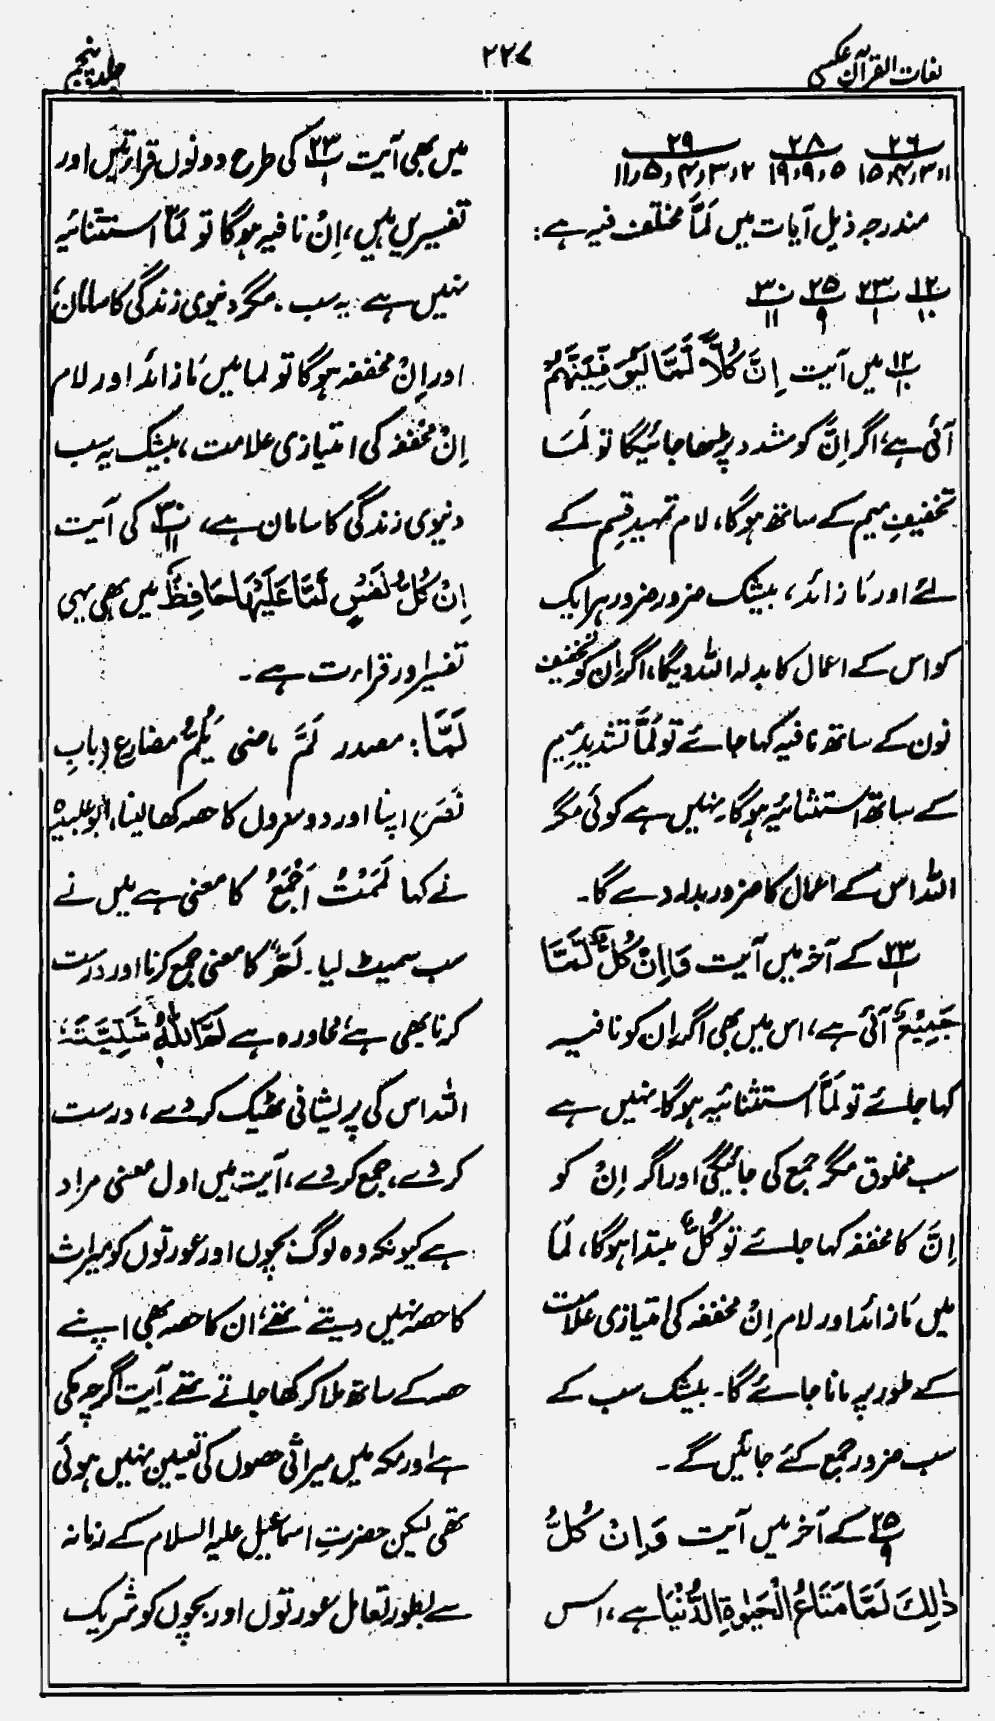 لغات القرآن عکسی
۲۲۷
جلد پنجم
۲۶ ۲۸ ۲۹
۱،۳،۴،۱۵ ۵،۹،۱۹ ۲،۳،۴،۵،۱۱
مندرجہ ذیل آیات میں لَمَّا مختلف فیہ ہے:
۱۲/۱۰ ۲۳/۱ ۲۵/۹ ۳۰/۱۱
۱۲/۱۰ میں آیت اِنَّ کُلًّا لَّمَّا لَیُوَفِّیَنَّهُمْ
آئی ہے، اگر اِنَّ کو مشدد پڑھا جائیگا تو لَمَا
تخفیفِ میم کے ساتھ ہوگا، لام تمہید قسم کے
لئے اور مَا زائد، بیشک ضرور ضرور ہر ایک
کو اس کے اعمال کا بدلہ اللہ دیگا، اگر اِن کو تخفیف
نون کے ساتھ نافیہ کہا جائے تو لَمَّا تشدیدِ میم
کے ساتھ استثنائیہ ہوگا۔ نہیں ہے کوئی مگر
اللہ اس کے اعمال کا ضرور بدلہ دے گا۔
۲۳/۱ کے آخر میں آیت وَاِنْ کُلٌّ لَّمَّا
جَمِیْعٌ آئی ہے، اس میں بھی اگر اِن کو نافیہ
کہا جائے تو لَمَّا استثنائیہ ہوگا۔ نہیں ہے
سب مخلوق مگر جمع کی جائیگی اور اگر اِنْ کو
اِنَّ کا مخففہ کہا جائے تو کُلٌّ مبتدا ہوگا، لَمَا
میں مَا زائد اور لام اِنْ مخففہ کی امتیازی علامت
کے طور پر مانا جائے گا۔ بیشک سب کے
سب ضرور جمع کئے جائیں گے۔
۲۵/۹ کے آخر میں آیت وَاِنْ کُلُّ
ذٰلِکَ لَمَّا مَتَاعُ الْحَیٰوةِ الدُّنْیَا ہے، اس
میں بھی آیت ۲۳/۱ کی طرح دونوں قرارتیں اور
تفسیریں ہیں، اِنْ نافیہ ہوگا تو لَمَّا استثنائیہ
نہیں ہے یہ سب۔ مگر دنیوی زندگی کا سامان،
اور اِنْ مخففہ ہوگا تو لما میں مَا زائد اور لام
اِنْ مخففہ کی امتیازی علامت، بیشک یہ سب
دنیوی زندگی کا سامان ہے، ۳۰/۱۱ کی آیت
اِنْ کُلُّ نَفْسٍ لَّمَّا عَلَیْهَا حَافِظٌ میں بھی یہی
تفسیر اور قراءت ہے۔
لَمًّا: مصدر لَمَّ ماضی یَلُمُّ مضارع (بابِ
نَصَرَ) اپنا اور دوسروں کا حصہ کھا لینا، ابو عبیدہ
نے کہا لَمَمْتُ اَجْمَعُ کا معنی ہے میں نے
سب سمیٹ لیا۔ لَمٌّ کا معنی جمع کرنا اور درست
کرنا بھی ہے، محاورہ ہے لَمَّ اللّٰهُ
اللہ اس کی پریشانی ٹھیک کردے، درست
کردے، جمع کردے، آیت میں اول معنی مراد
ہے کیونکہ وہ لوگ بچوں اور عورتوں کو میراث
کا حصہ نہیں دیتے تھے، ان کا حصہ بھی اپنے
حصہ کے ساتھ ملا کر کھا جاتے تھے آیت اگرچہ مکی
ہے اور مکہ میں میراثی حصوں کی تعیین نہیں ہوئی
تھی لیکن حضرت اسماعیل علیہ السلام کے زمانہ
سے بطور تعامل عورتوں اور بچوں کو شریک